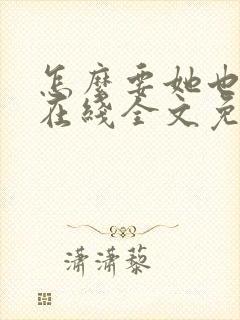 怎麼要她也
在綫全文免
瀟瀟藜